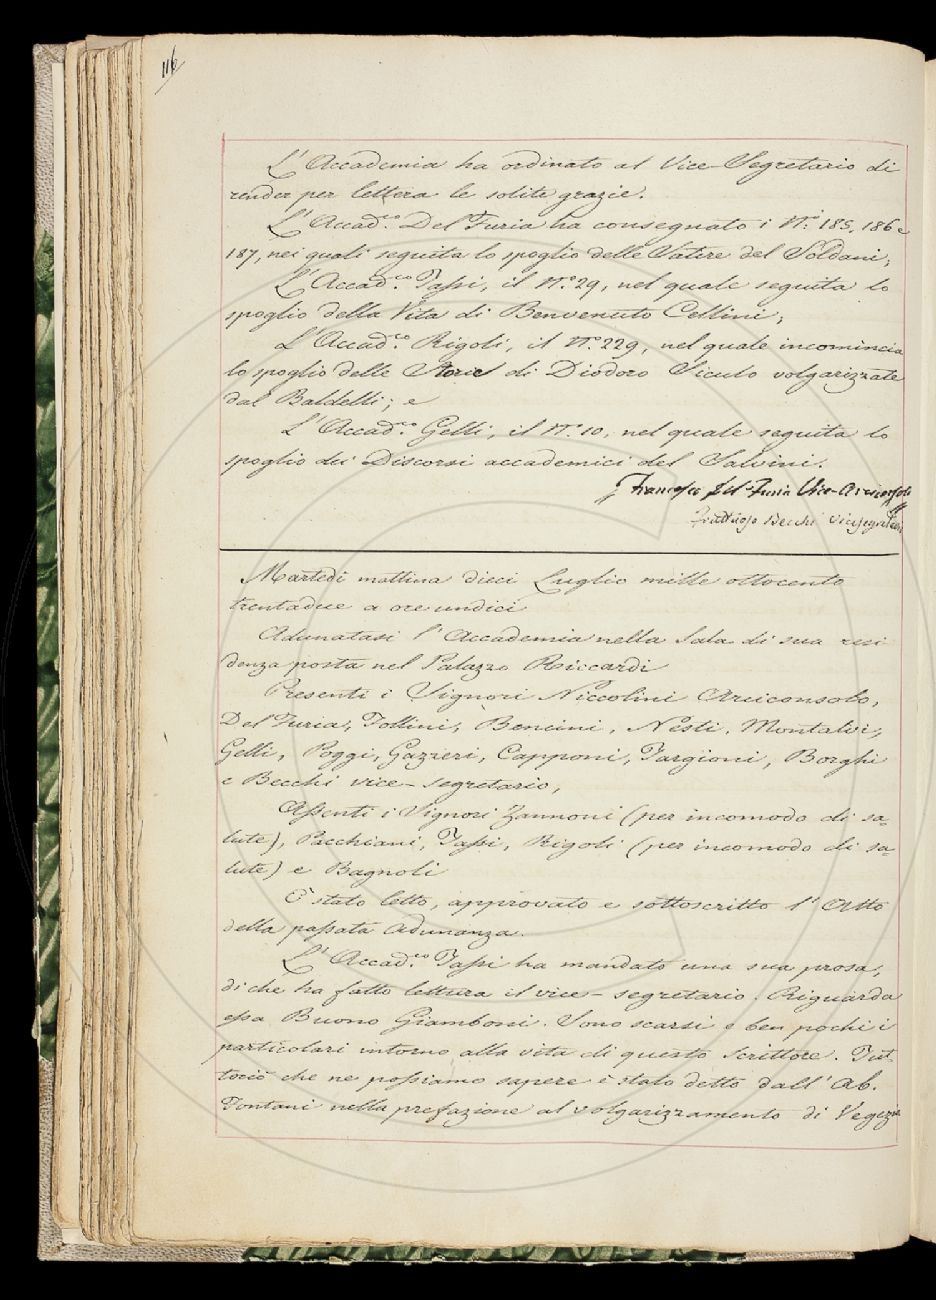 116
L'Accademia ha ordinato al Vice-Segretario di
render per lettera le solite grazie.
L'Accad.co Del Furia ha consegnato i N.i 185, 186 e
187, nei quali seguita lo spoglio delle Satire del Soldani;
L'Accad.co Tassi, il N.o 29, nel quale seguita lo
spoglio della Vita di Benvenuto Cellini;
L'Accad.co Rigoli, il N.o 229, nel quale incomincia
lo spoglio delle Storie di Diodoro Siculo volgarizzate
dal Baldelli; e
L'Accad.co Gelli, il N.o 10, nel quale seguita lo
spoglio dei Discorsi accademici del Salvini.
Francesco Del Furia Vice-Arciconsolo
Fruttuoso Becchi Vicesegretario
Martedì mattina dieci Luglio mille ottocento
trentadue a ore undici
Adunatasi l'Accademia nella Sala di sua resi
denza posta nel Palazzo Riccardi
Presenti i Signori Niccolini Arciconsolo,
Del Furia, Follini, Bencini, Nesti, Montalvi,
Gelli, Poggi, Gazzeri, Capponi, Targioni, Borghi
e Becchi vice-segretario,
Assenti i Signori Zannoni (per incomodo di sa=
lute), Pacchiani, Tassi, Rigoli (per incomodo di sa=
lute) e Bagnoli
È stato letto, approvato e sottoscritto l'Atto
della passata Adunanza.
L'Accad.co Tassi ha mandato una sua prosa,
di che ha fatto lettura il vice-segretario. Riguarda
essa Buono Giamboni. Sono scarsi e ben pochi i
particolari intorno alla vita di questo scrittore. Tut
tociò che ne possiamo sapere è stato detto dall'Ab.
Fontani nella prefazione al volgarizzamento di Vegezio